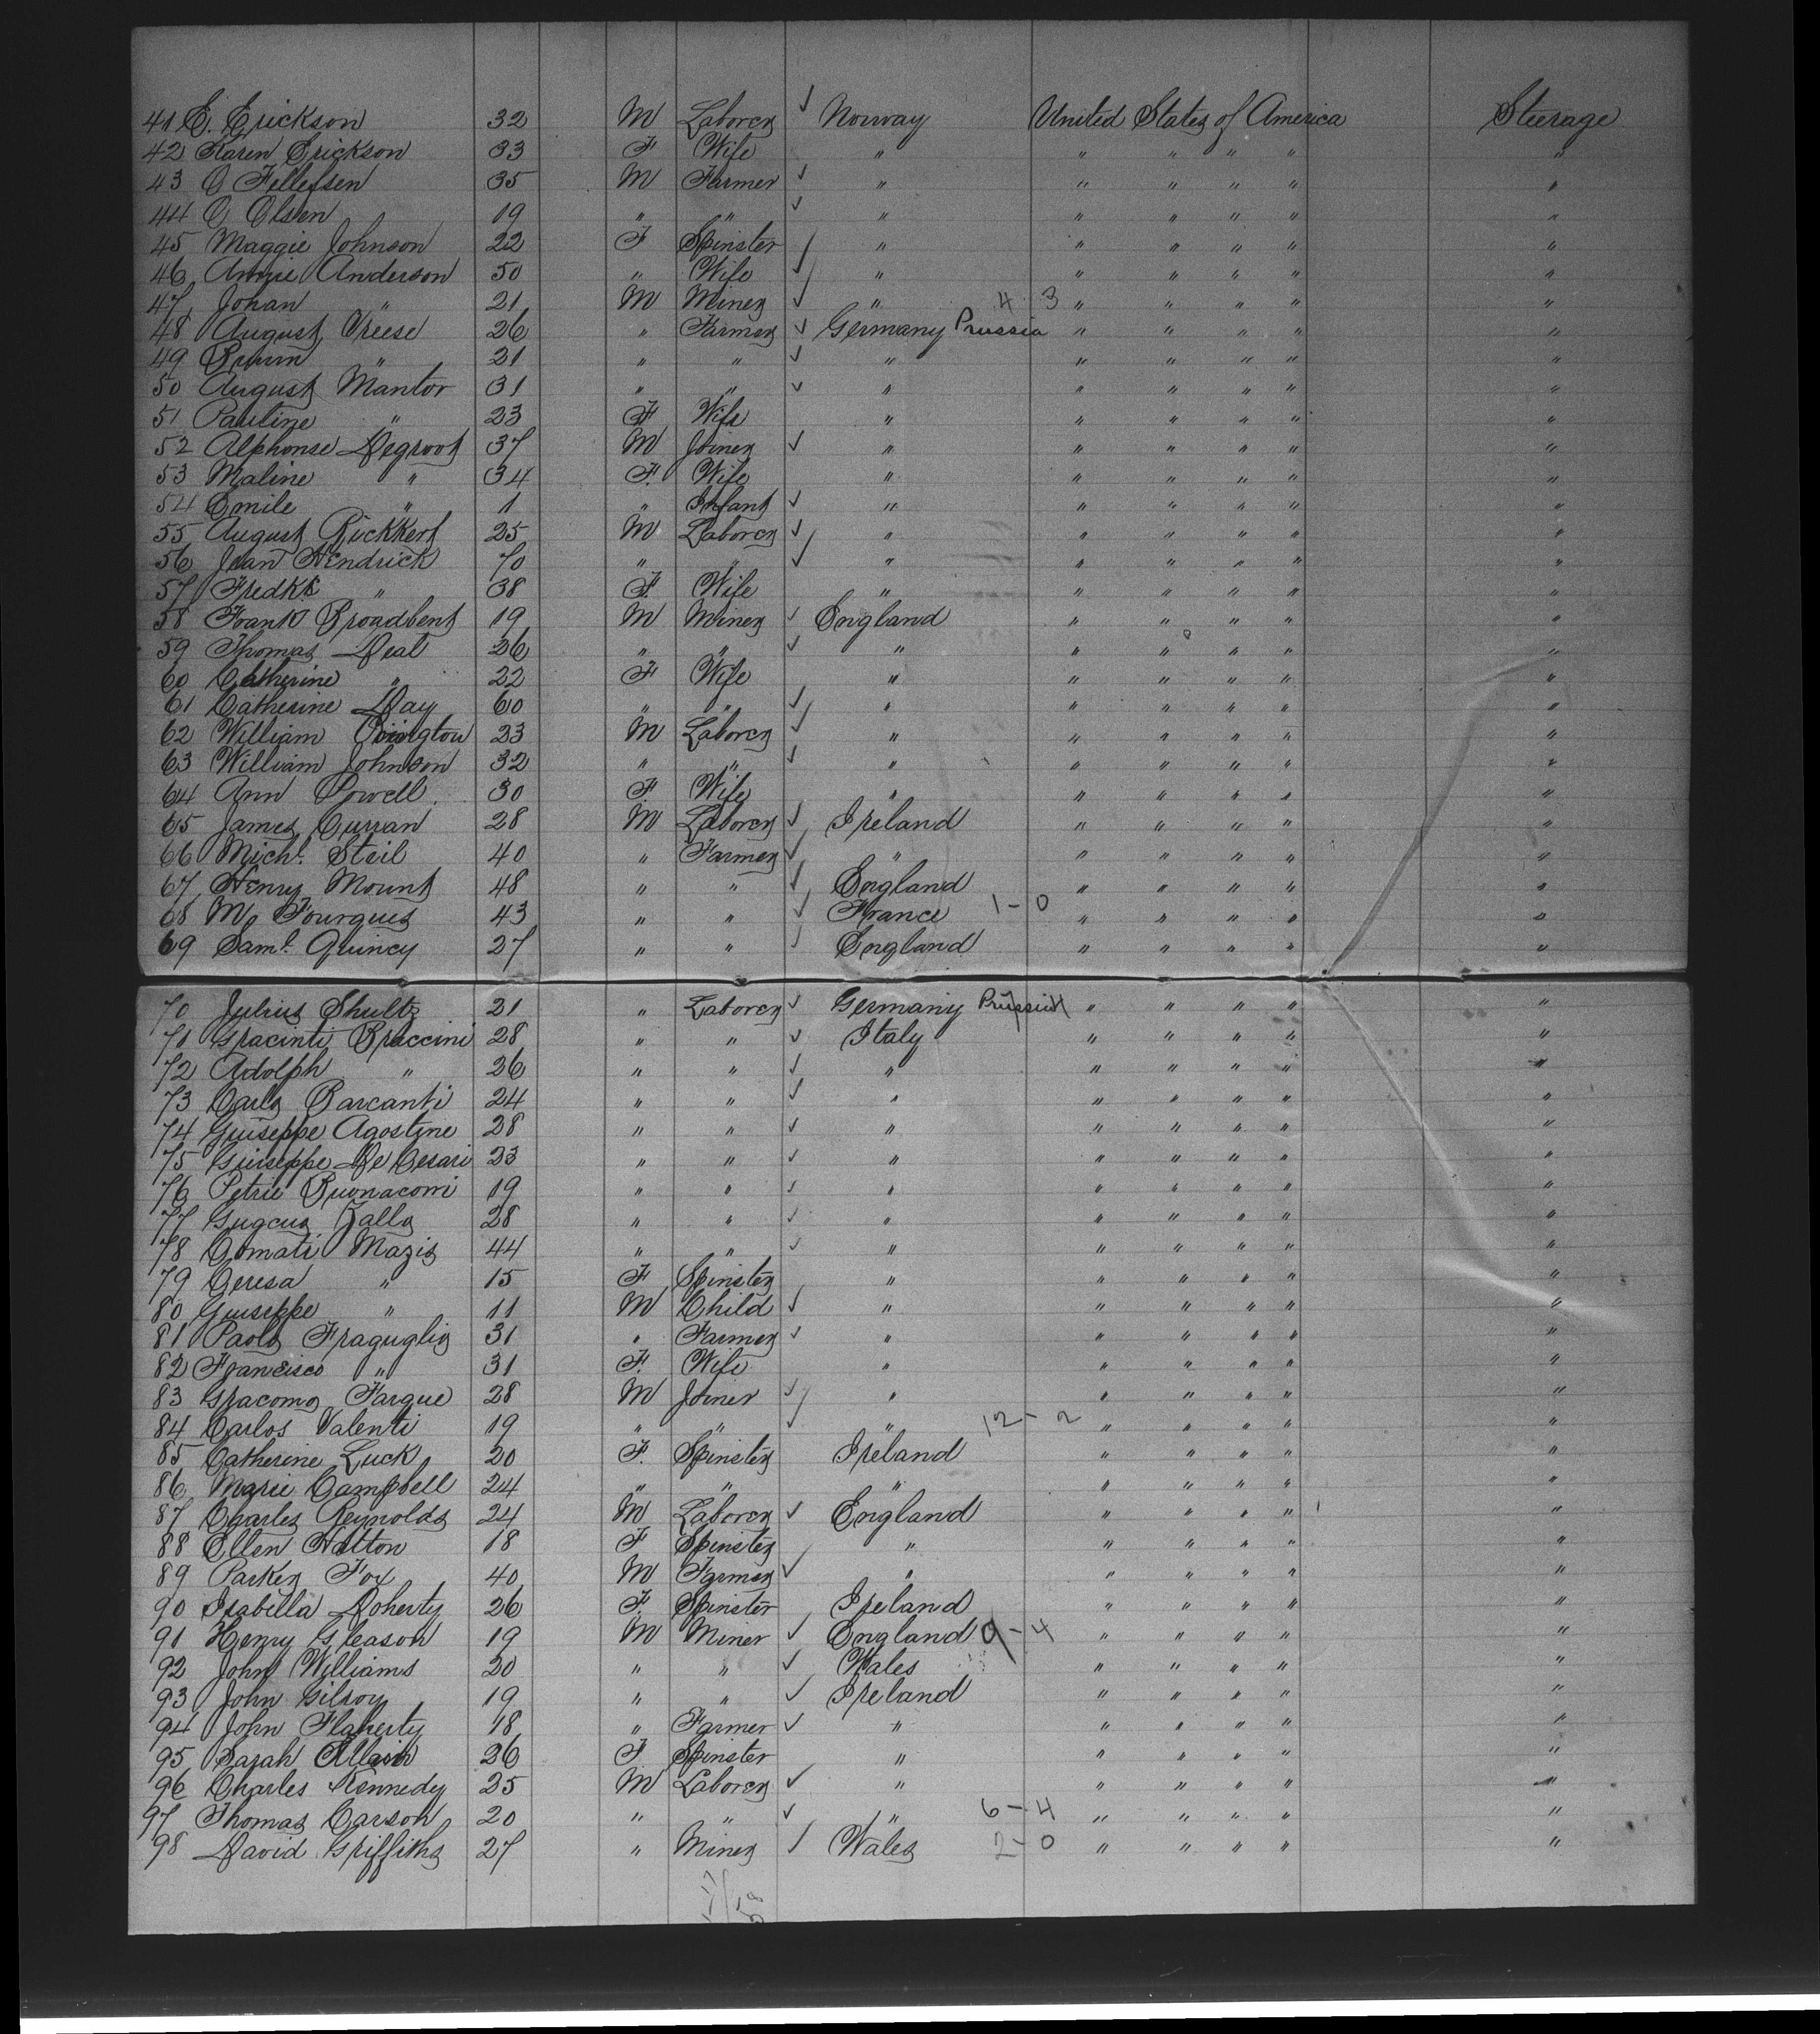 41 E. Erickson 32 M Laborer ✓ Norway United States of America Steerage
42 Karen Erickson 33 F Wife " " " " " "
43 O Fellefsen 35 M Farmer ✓ " " " " " "
44 O Olsen 19 " " ✓ " " " " " "
45 Maggie Johnson 22 F Spinster ✓ " " " " " "
46 Annie Anderson 50 " Wife ✓ " " " " " "
47 Johan " 21 M Miner ✓ " 4 3 " " " " "
48 August Vreese 26 " Farmer ✓ Germany Prussia " " " " "
49 " 21 " " ✓ " " " " " "
50 August Mantor 31 " " ✓ " " " " " "
51 Pauline " 23 F Wife " " " " " "
52 Alphonse Degroot 37 M Joiner ✓ " " " " " "
53 Maline " 34 F. Wife " " " " " "
54 Emile " 1 " Infant ✓ " " " " " "
55 August Rickkert 25 M Laborer ✓ " " " " " "
56 Jean Hendrick 70 " " ✓ " " " " " "
57 Fredkk " 38 F. Wife " " " " " "
58 Frank Broadbent 19 M Miner ✓ England " " " " "
59 Thomas Deal 26 " " ✓ " " " " " "
60 Catherine " 22 F Wife " " " " " "
61 Catherine Day 60 " " ✓ " " " " " "
62 William 23 M Laborer ✓ " " " " " "
63 William Johnson 32 " " ✓ " " " " " "
64 Ann Powell 30 F. Wife " " " " " "
65 James Curran 28 M Laborer ✓ Ireland " " " " "
66 Michl. Steil 40 " Farmer ✓ " " " " " "
67 Henry Mount 48 " " ✓ England " " " " "
68 M. Fourgues 43 " " ✓ France 1-0 " " " " "
69 Saml. Quincy 27 " " ✓ England " " " " "
70 Julius Shultz 21 " Laborer ✓ Germany Prussia " " " " "
71 Gracinti Braccini 28 " " ✓ Italy " " " " "
72 Adolph " 26 " " ✓ " " " " " "
73 Carlo Barcanti 24 " " ✓ " " " " " "
74 Guiseppe Agostine 28 " " ✓ " " " " " "
75 Guiseppe De Cesari 23 " " ✓ " " " " " "
76 Petrie Buonaconi 19 " " ✓ " " " " " "
77 Zalla 28 " " ✓ " " " " " "
78 Comati Mazis 44 " " ✓ " " " " " "
79 Ceresa " 15 F Spinster " " " " " "
80 Guiseppe " 11 M Child ✓ " " " " " "
81 Paolo Fraguglia 31 " Farmer ✓ " " " " " "
82 Francisco " 31 F. Wife " " " " " "
83 Gracomo Fargue 28 M Joiner ✓ " " " " " "
84 Carlos Valenti 19 " " ✓ " 12-2 " " " " "
85 Catherine Luck 20 F. Spinster Ireland " " " " "
86 Marie Campbell 24 " " " " " " " "
87 Charles Reynolds 24 M Laborer ✓ England " " " " "
88 Ellen Hatton 18 F Spinster " " " " " "
89 Parker Fox 40 M Farmer ✓ " " " " " "
90 Isabella Doherty 26 F. Spinster Ireland " " " " "
91 Henry Gleason 19 M Miner ✓ England 9-4 " " " " "
92 John Williams 20 " " ✓ Wales " " " " "
93 John Gilroy 19 " " ✓ Ireland " " " " "
94 John Flaherty 18 " Farmer ✓ " " " " " "
95 Sarah 26 F Spinster " " " " " "
96 Charles Kennedy 25 M Laborer ✓ " " " " " "
97 Thomas Carson 20 " " ✓ " 6-4 " " " " "
98 David Griffiths 27 " Miner ✓ Wales 2-0 " " " " "